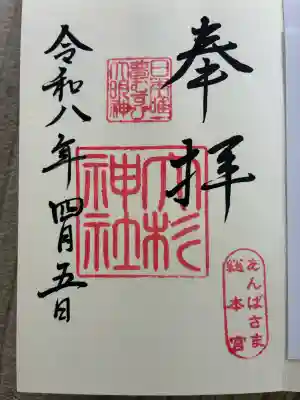 奉拝
あんばさま
総本宮
日本唯一
夢むすび
大明神
大杉
神社
令和八年四月五日